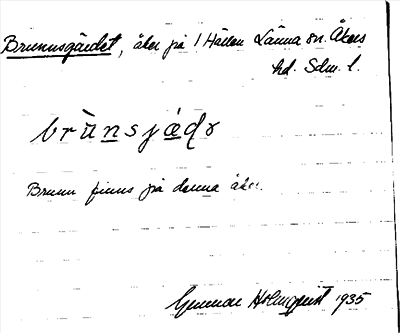 Brunnsgärdet, åker på 1 Hällen Länna sn. Åkers
hd. Sdm. l.
brùnsjædɣ
Brunn finns på denna åker.
Gunnar Holmquist 1935